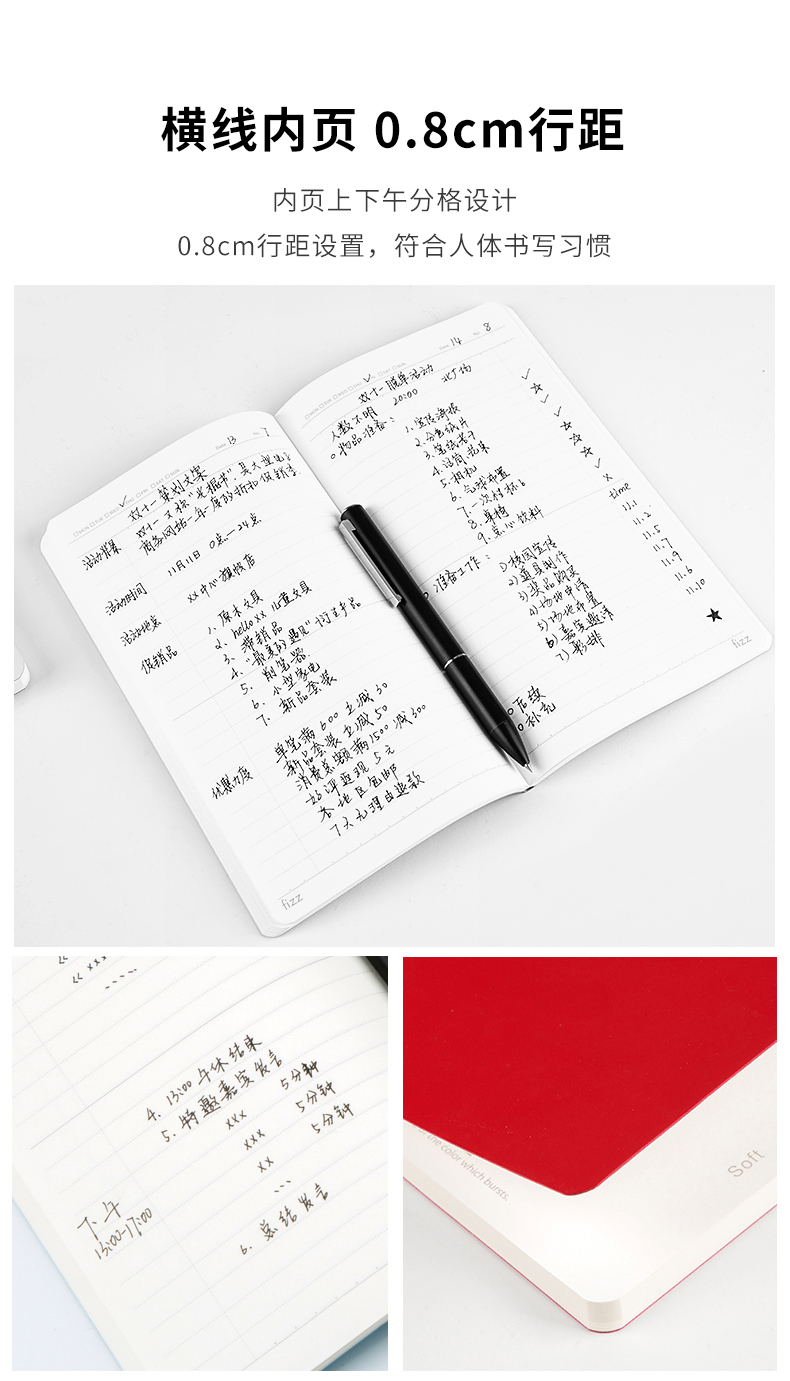 横线内页 0.8cm行距
内页上下午分格设计
0.8cm行距设置，符合人体书写习惯
Date 13 No. 7
双十一策划文案
活动背景
活动时间
11月11日 0点—24点
活动地点
xx中心旗舰店
促销品
1. 原木文具
2. hello xx 儿童文具
3. 滞销品
4. "最美的遇见"衍生产品
5. 削笔器
6. 小型家电
7. 新品套装
优惠力度
单笔满600立减30
新品套装立减50
消费总额满1500 减300
好评返现5元
本地区包邮
7天无理由退款
fizz
Date 14 No. 8
双十一脱单活动
人数不明 20:00 北广场
物品准备：
1. 宣传海报
2. 分色纸片
3. 笔纸若干
4. 话筒、花束
5. 相机
6. 气球布置
7. 一次性杯子
8. 桌椅
9. 点心饮料
准备工作：
time
1) 校园宣传 11.1
2) 道具制作 11.2
3) 奖品购买 11.5
4) 场地申请 11.7
5) 场地布置 11.9
6) 嘉宾邀请 11.6
7) 彩排 11.10
后续
补充
fizz
<< xxx
4. 13:00 午休结束
5. 特邀嘉宾发言
xxx 5分钟
xxx 5分钟
xx 5分钟
...
下午
13:00-17:00
6. 总结发言
the color which bursts.
Soft